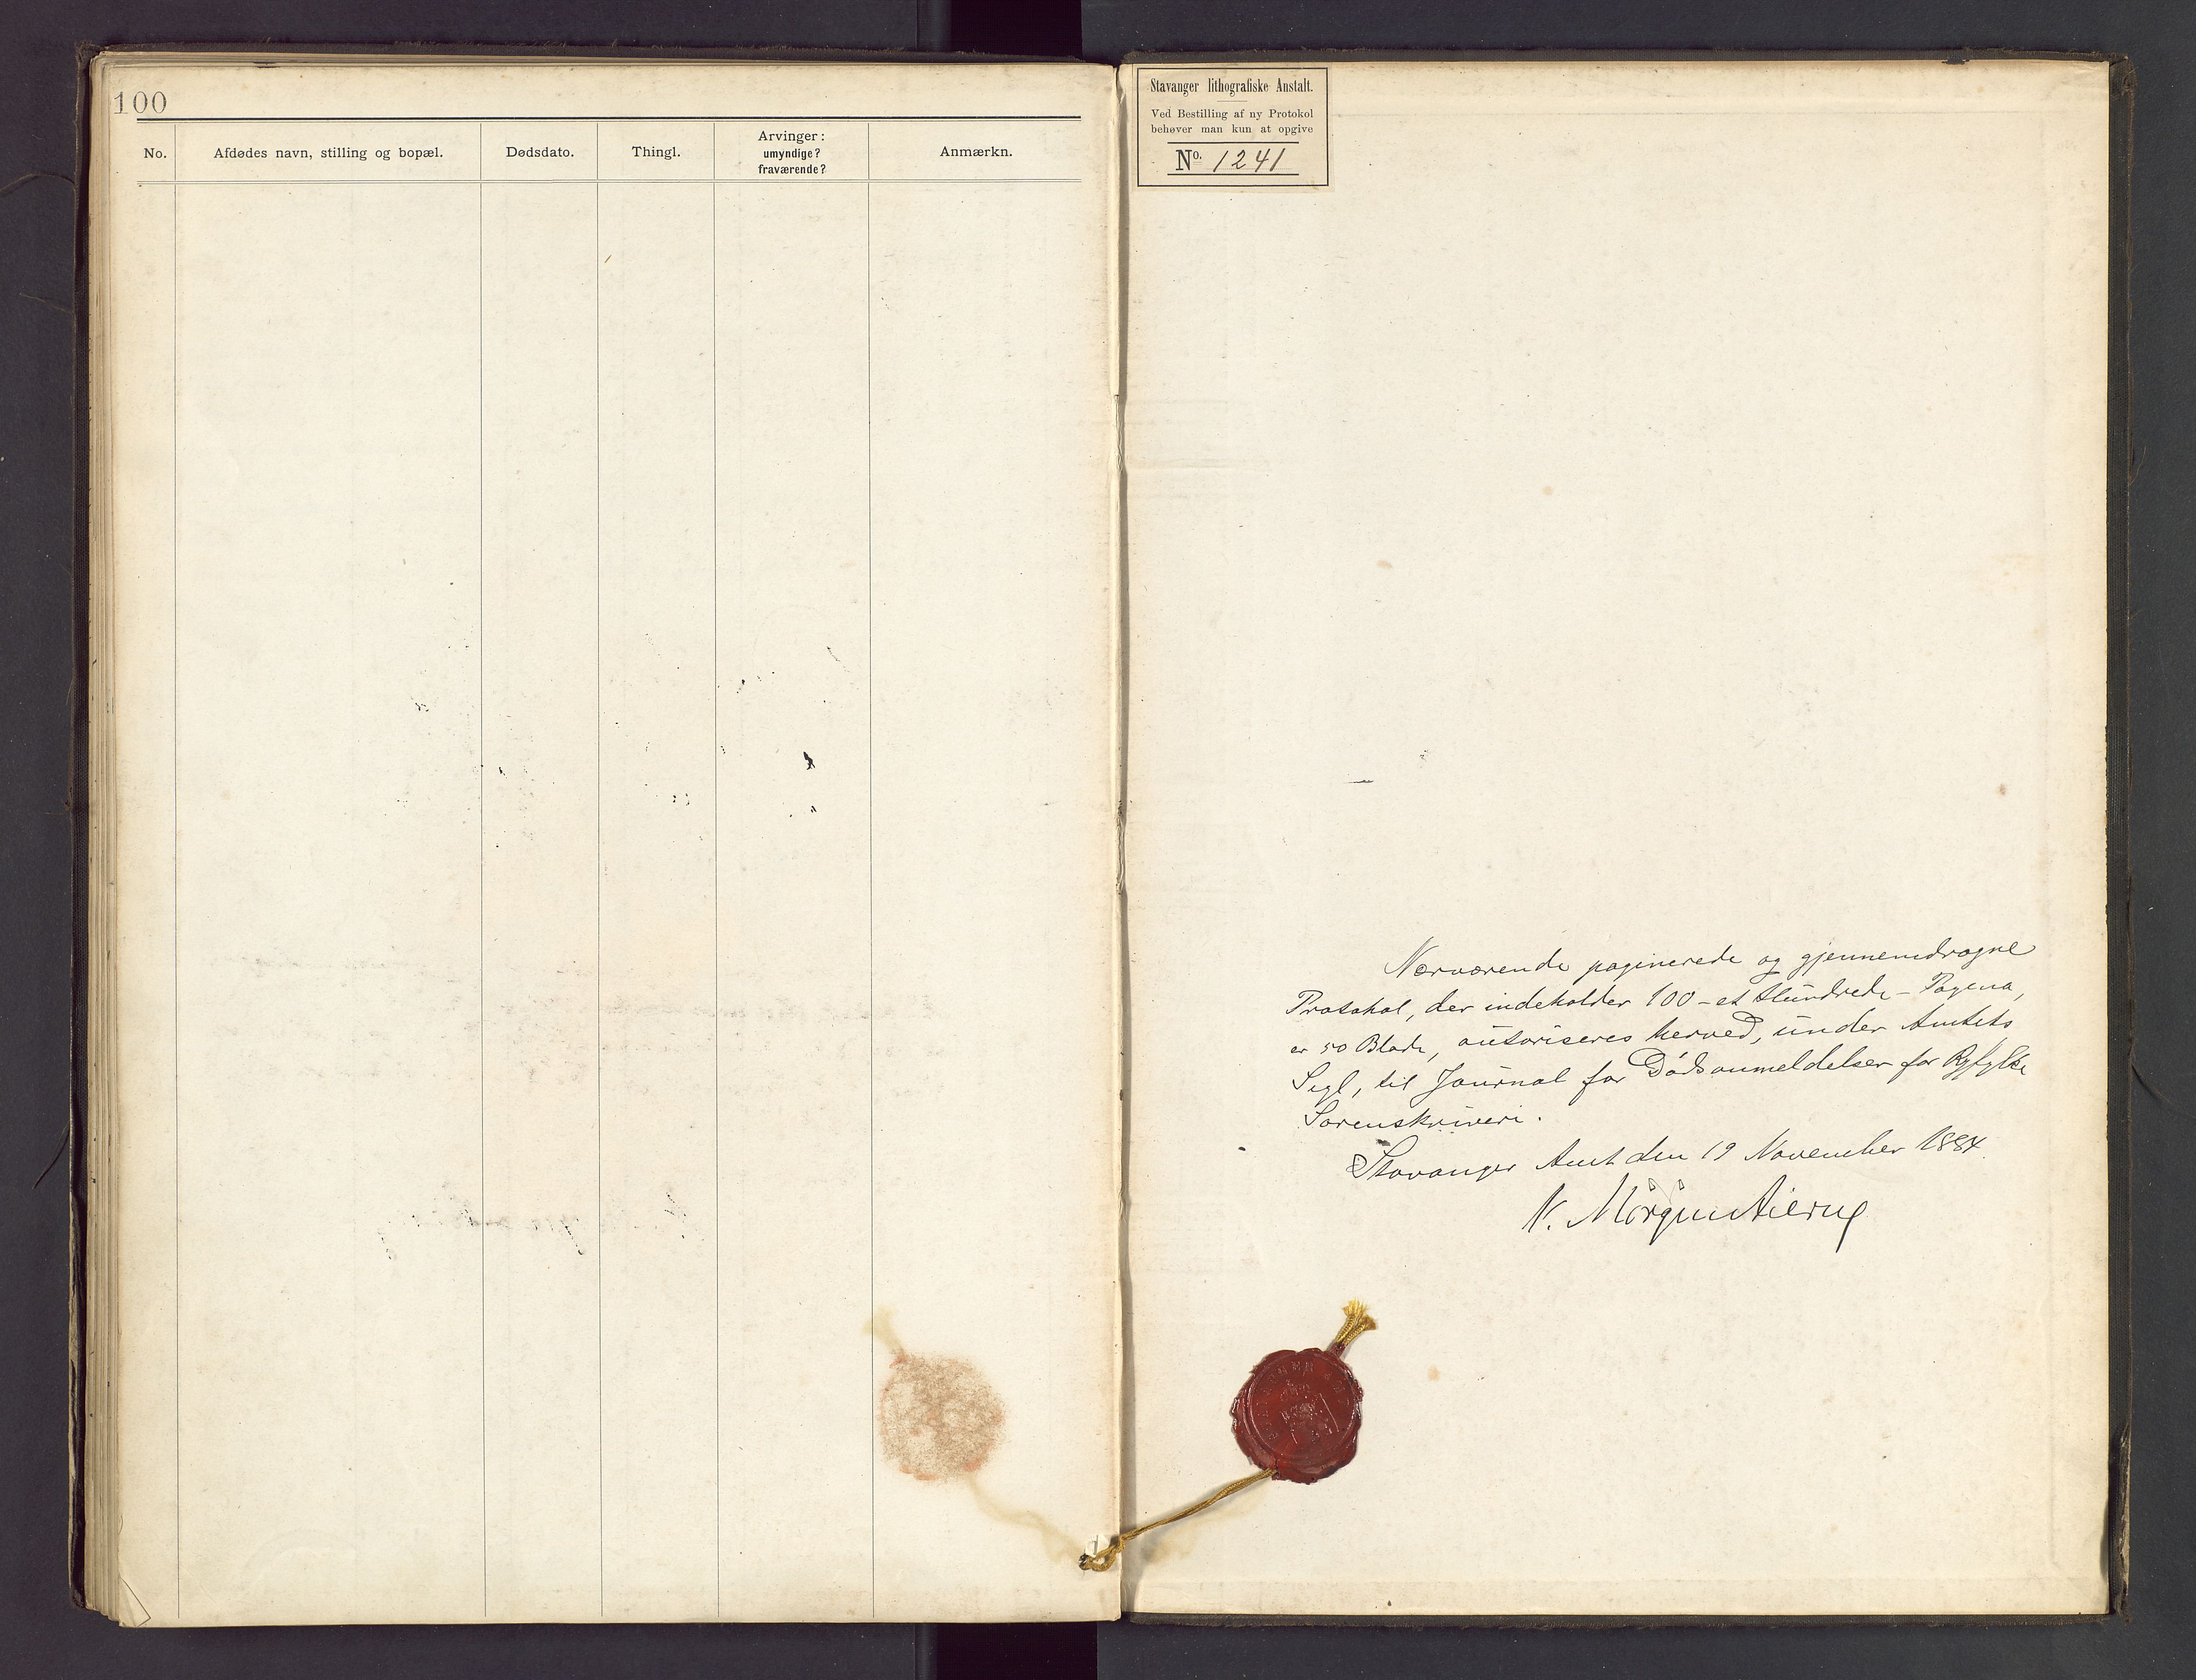 100
No.
Afdødes navn, stilling og bopæl.
Dødsdato.
Thingl.
Arvinger:
umyndige?
fraværende?
Anmærkn.
Stavanger lithografiske Anstalt.
Ved Bestilling af ny Protokol
behøver man kun at opgive
No. 1241
Nærværende paginerede og gjennemdragne
Protokol, der indeholder 100 - et Hundrede - Pagina,
er 50 Blade, autoriseres herved, under Amtets
Segl, til Journal for Dødsanmeldelser for Ryfylke
Sorenskriveri.
Stavanger Amt den 19 November 1884